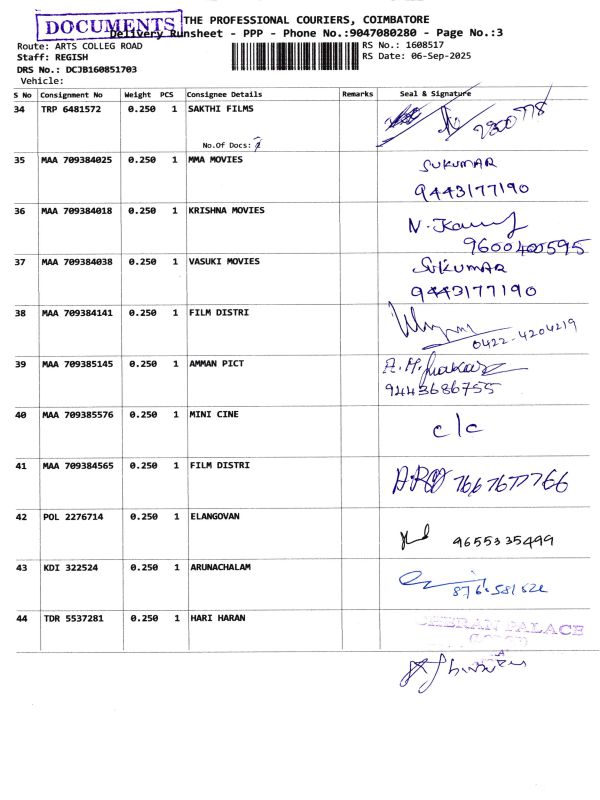 DOCUMENTS THE PROFESSIONAL COURIERS, COIMBATORE
Delivery Runsheet - PPP - Phone No.:9047080280 - Page No.:3
Route: ARTS COLLEG ROAD RS No.: 1608517
Staff: REGISH RS Date: 06-Sep-2025
DRS No.: DCJB160851703
Vehicle:
S No Consignment No Weight PCS Consignee Details Remarks Seal & Signature
34 TRP 6481572 0.250 1 SAKTHI FILMS
No.Of Docs: 2
35 MAA 709384025 0.250 1 MMA MOVIES SUKUMAR
9443177190
36 MAA 709384018 0.250 1 KRISHNA MOVIES
9600400595
37 MAA 709384038 0.250 1 VASUKI MOVIES SUKUMAR
9443177190
38 MAA 709384141 0.250 1 FILM DISTRI
0422-4204219
39 MAA 709385145 0.250 1 AMMAN PICT
9443686755
40 MAA 709385576 0.250 1 MINI CINE c/c
41 MAA 709384565 0.250 1 FILM DISTRI
42 POL 2276714 0.250 1 ELANGOVAN 9655335499
43 KDI 322524 0.250 1 ARUNACHALAM
44 TDR 5537281 0.250 1 HARI HARAN
PALACE